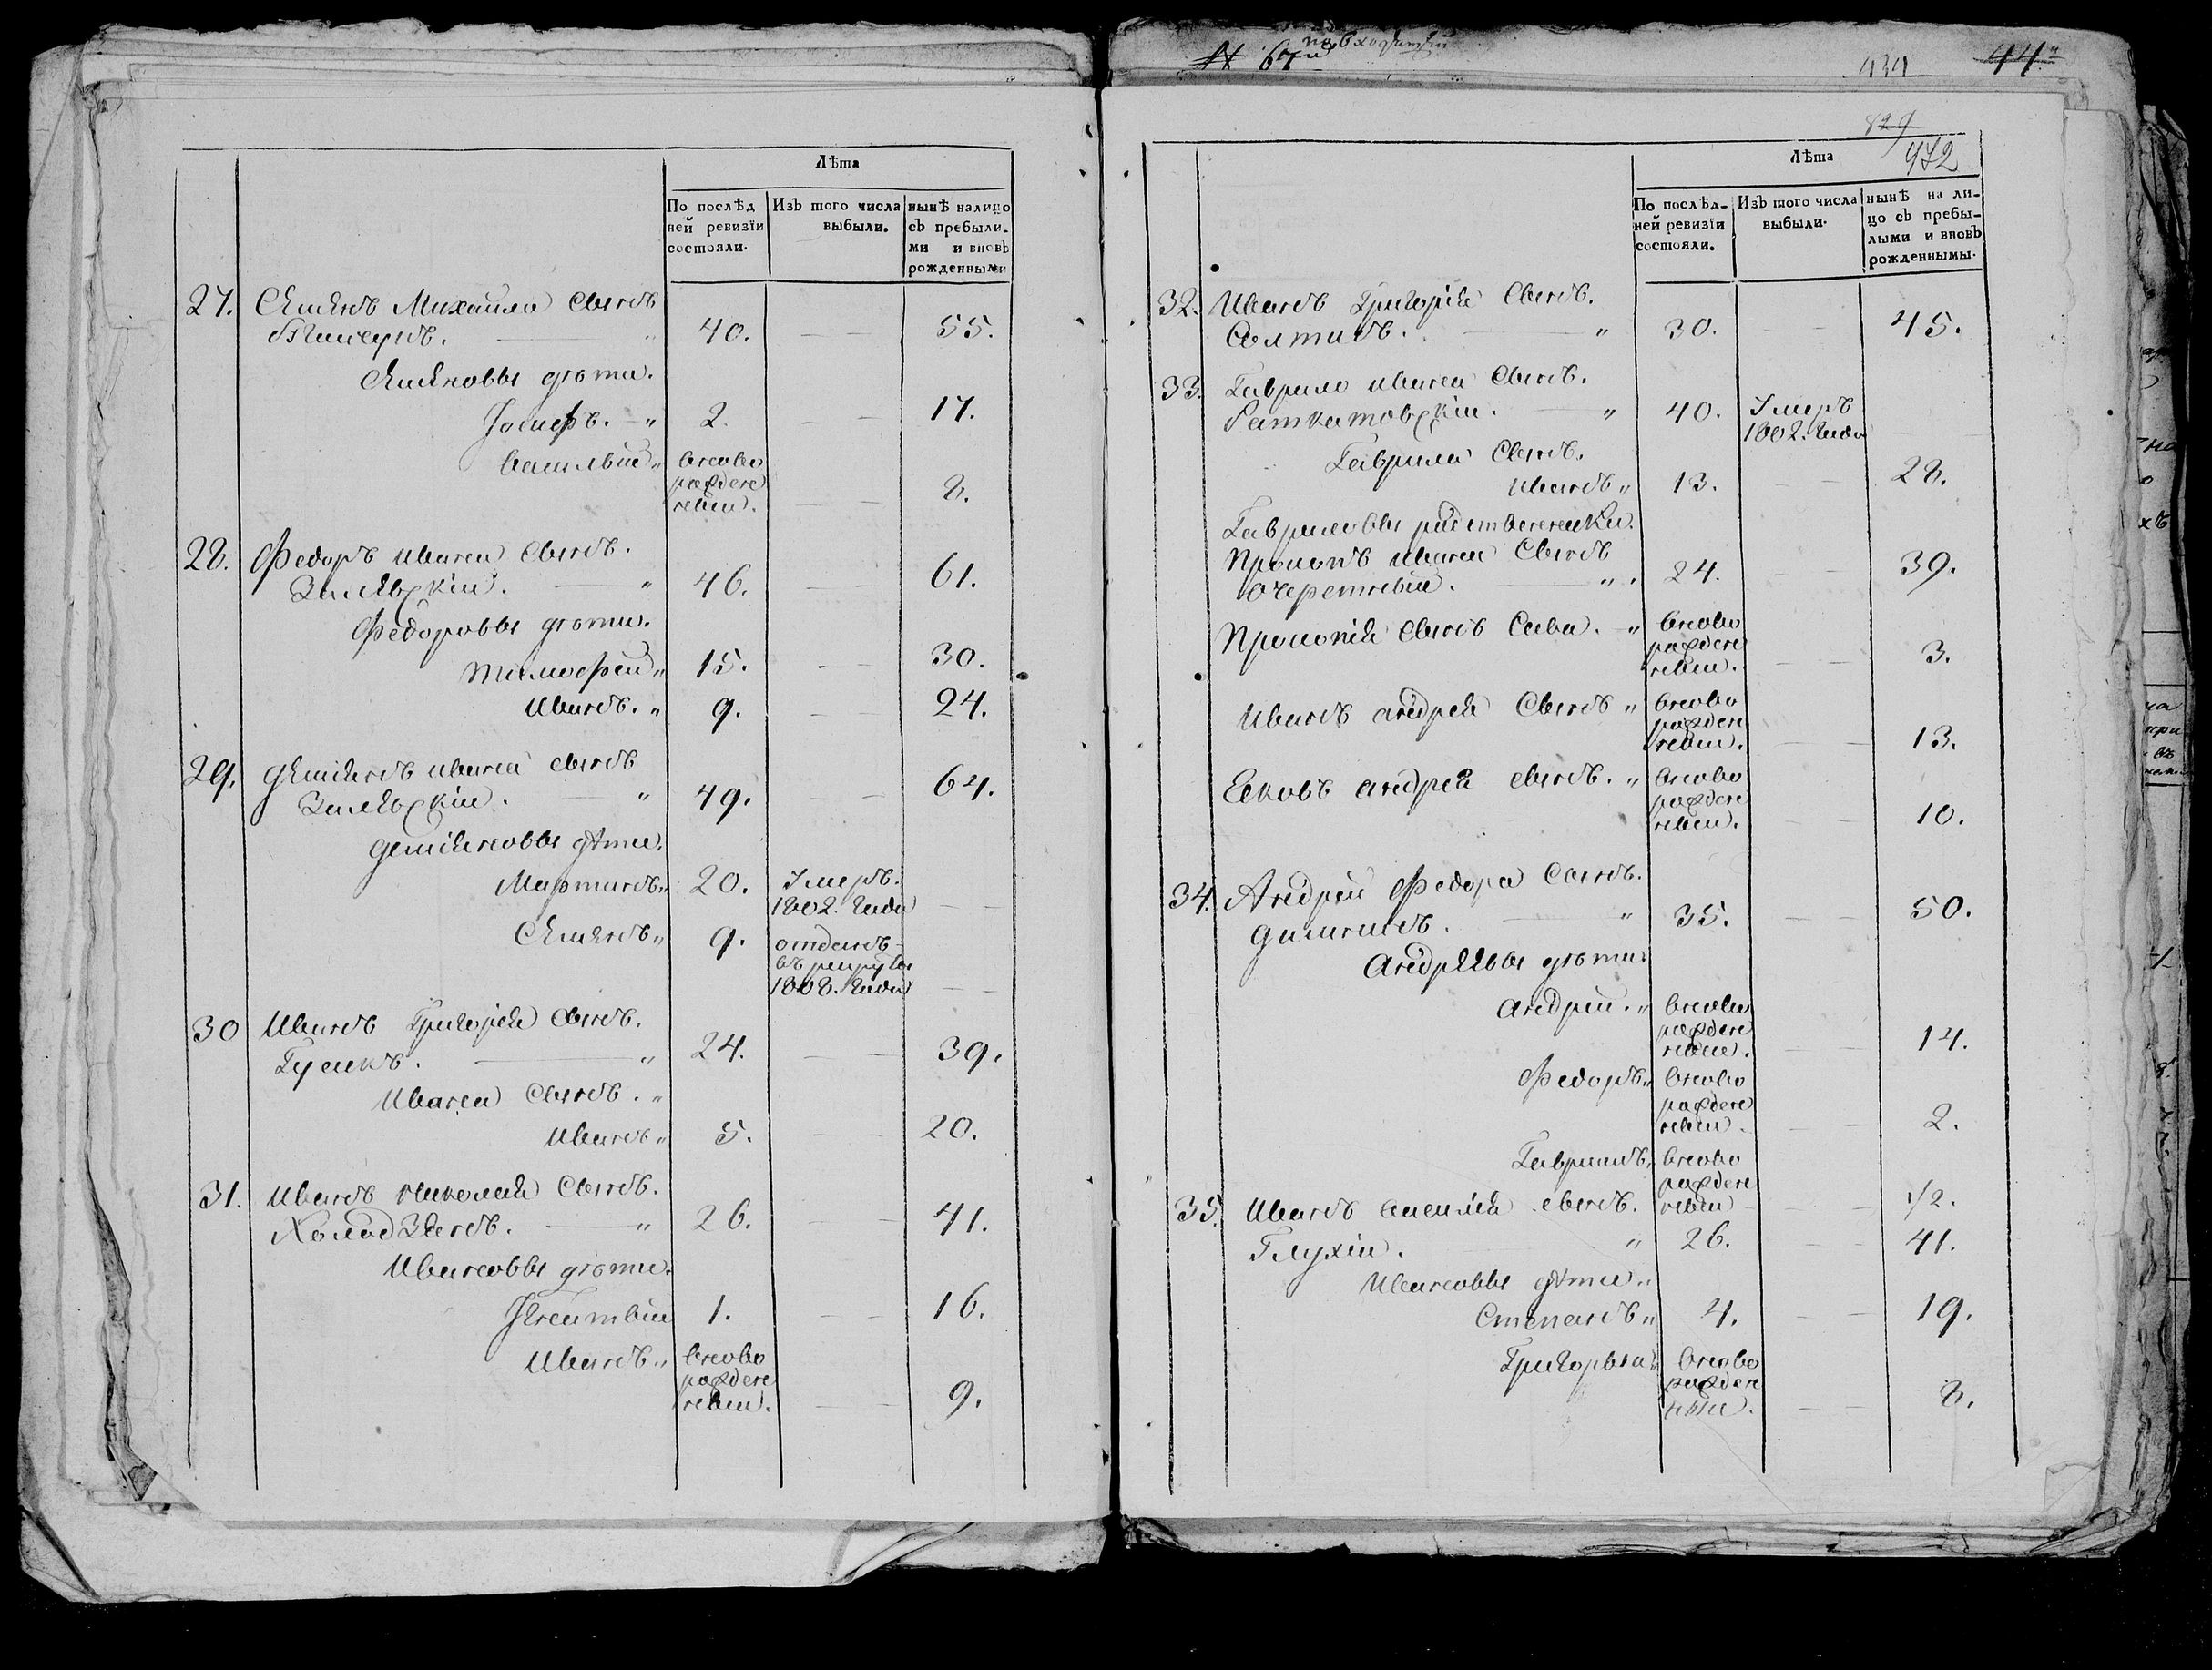 Лѣта
По послѣд
ней ревизіи
состояли.
Изъ того числа
выбыли.
нынѣ налицо
съ пребыли-
ми и вновь
рожденными
27. Семенъ Михайла сынъ
40. 55.
Семеновы дѣти.
Іосифъ. 2. 17.
Василий вново
рожден
ный. 8.
28. Федоръ Ивана сынъ.
Залевскій. 46. 61.
Федоровы дѣти.
Тимофей 15. 30.
Иванъ. 9. 24.
29. Демянъ Ивана сынъ
Залевскій. 49. 64.
Демяновы дѣти.
Мартинъ 20. Умеръ.
1802. Года
Семенъ 9. отданъ
въ рекруты
1808. Года
30 Иванъ Григорея сынъ.
Гусакъ. 24. 39.
Ивана сынъ.
Иванъ 5. 20.
31. Иванъ Николая сынъ.
26. 41.
Ивановы дѣти.
1. 16.
Иванъ вново
рожден
ный. 9.
№ 67й по входящей
439 44
829
472
Лѣта
По послѣд-
ней ревизіи
состояли.
Изъ того числа
выбыли.
нынѣ на ли-
цо съ пребы-
лыми и вновь
рожденнымы.
32. Иванъ Григорея сынъ.
Солтисъ. 30. 45.
33. Гаврило Ивана сынъ.
Раткатовскій. 40. Умеръ
1802. Года
Гаврила сынъ.
Иванъ 13. 28.
Гавриловы родственники.
Прокопъ Ивана сынъ
Очеретный. 24. 39.
Прокопия сынъ Сава. вново
рожден
ный. 3.
Иванъ Андрея сынъ вново
рожден
ный. 13.
Яковъ Андрея сынъ. вново
рожден
ный. 10.
34. Андрей Федора сынъ.
35. 50.
Андреевы дѣти
Андрей. вново
рожден
ный. 14.
Федоръ вново
рожден
ный. 2.
Гаврилъ вново
рожден
ный 1/2.
35. Иванъ Василия сынъ.
Глухій. 26. 41.
Ивановы дѣти
Степанъ 4. 19.
Григорый вново
рожден
ный. 8.